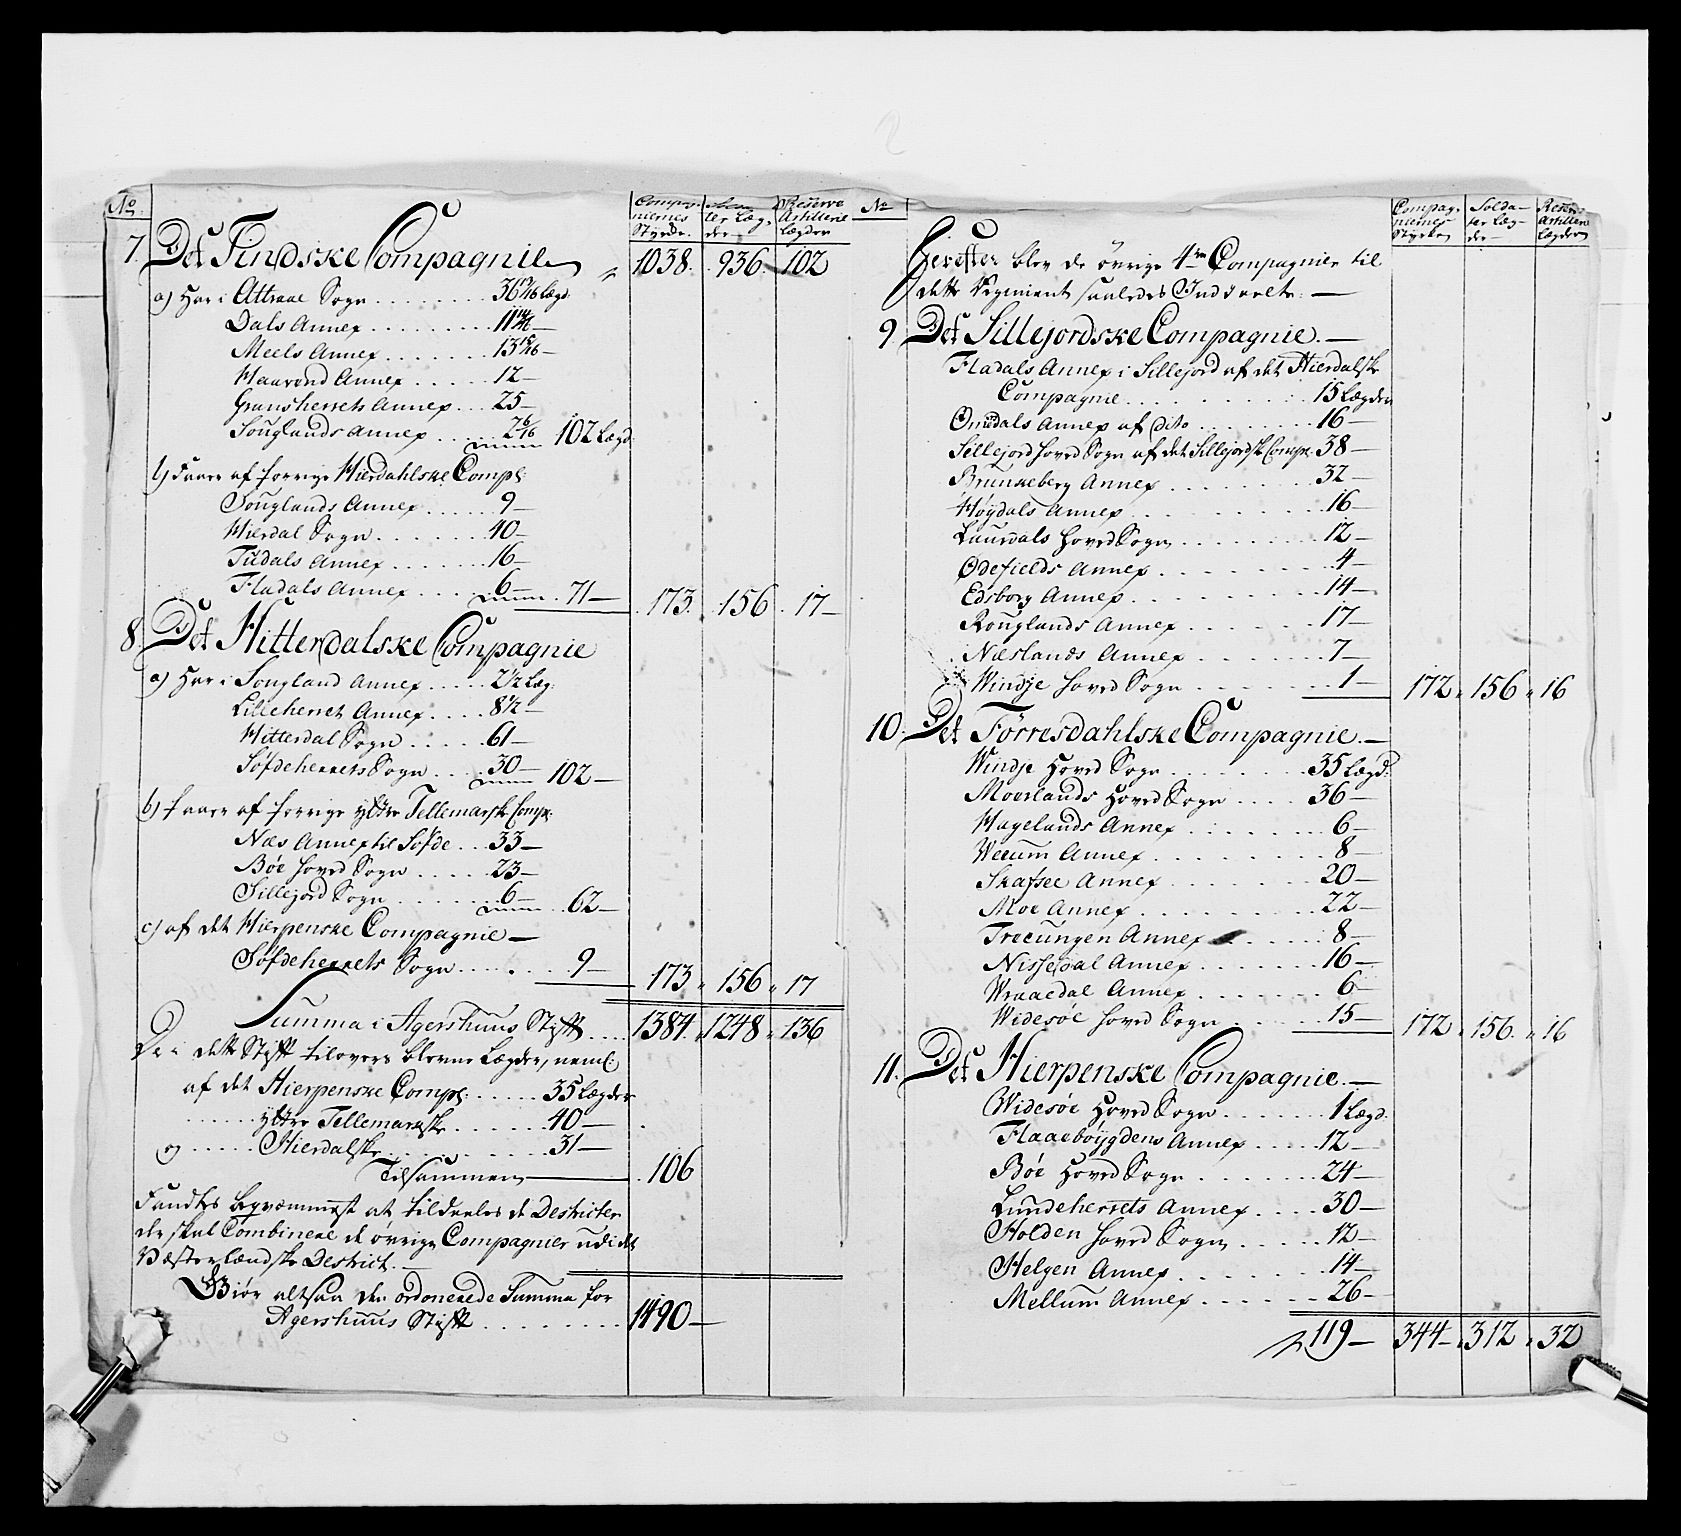 No
Compag-
niernes
Styrke.
Solda-
ter Læg-
der
Reserve
Artillerie
Lægder
7. Det Tindske Compagnie 1038. 936. 102
a) Har i Attraae Sogn 36 Lægd:
Dals Annex 11
Meels Annex 13
Haavend Annex 12
Gransherrets Annex 25
Souglands Annex 2 6/16 102 Lægd
b) Faaer af forrige Hierdahlske Comp:
Souglands Annex 9
Hierdal Sogn 40
Tudals Annex 16
Fladals Annex 6 71 173. 156. 17
8. Det Hitterdalske Compagnie
a) Har i Sougland Annex 2 1/2 Læg:
Lilleherret Annex 8 1/2
Hitterdal Sogn 61
Søfdeherrets Sogn 30 102
b) faaer af forrige yttre Tellemarske Comp:
Næs Annex til Søfde 33
Bøe hoved Sogn 23
Sillejord Sogn 6 62
c) af det Hierpenske Compagnie
Søfdeherrets Sogn 9 173. 156. 17
Summa i Agershuus Stift 1384. 1248. 136
De i dette Stift tilovers blevne Lægder, neml:
af det Hierpenske Comp: 35 Lægder
yttre Tellemarkske 40
og Hierdalske 31
Tilsammen 106
Fandtes beqvæmmest at tildeeles de Districter
der skal Combinere de øvrige Compagnier udi det
Væsterlændske District.
Giør altsaa den ordonerede Summa for
Agershuus Stift 1490
No
Compag-
niernes
Styrke
Solda-
ter Læg-
der
Reserve
Artillerie
Lægder
Herefter blev de øvrige 4re Compagnier til
dette Regiment saaledes Inddeelte:
9 Det Sillejordske Compagnie.
Fladals Annex i Sillejord af det Hierdalske
Compagnie 15 Lægder
Omdals Annex af dito 16
Sillejord hoved Sogn af det Sillejordske Comp: 38
Brunkeberg Annex 32
Høydals Annex 16
Laurdals hoved Sogn 12
Ødefields Annex 4
Edsborg Annex 14
Rouglands Annex 17
Næslands Annex 7
Windje hoved Sogn 1 172. 156. 16
10. Det Førresdahlske Compagnie.
Windje Hoved Sogn 35 Lægd:
Moerlands Hoved Sogn 36
Hagelands Annex 6
Weeum Annex 8
Skafsee Annex 20
Moe Annex 22
Treeungen Annex 8
Nissedal Annex 16
Wraaedal Annex 6
Widesøe hoved Sogn 15 172. 156. 16
11. Det Hierpenske Compagnie.
Widesøe Hoved Sogn 1 Lægd.
Flaaebøygdens Annex 12
Bøe Hoved Sogn 24
Lundeherrets Annex 30
Holden hoved Sogn 12
Helgen Annex 14
Mellum Annex 26
119 344. 312. 32